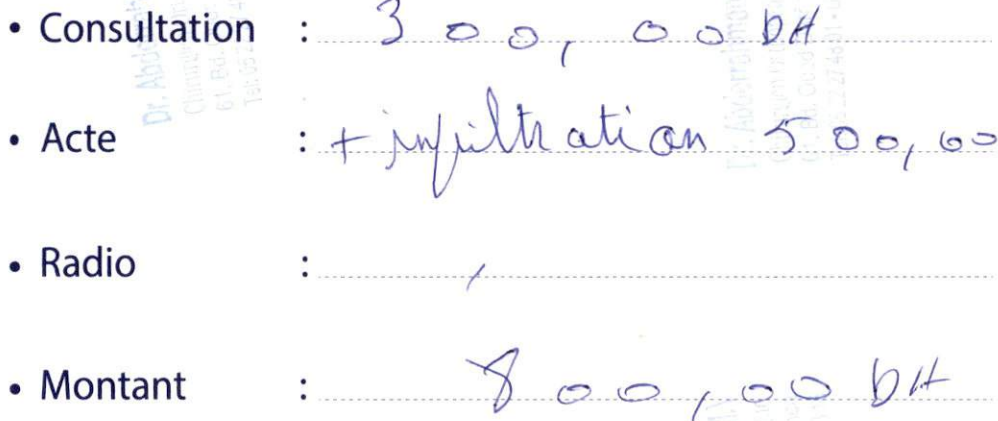 • Consultation : 300,00 DH
• Acte : + infiltration 500,00
• Radio : /
• Montant : 800,00 DH